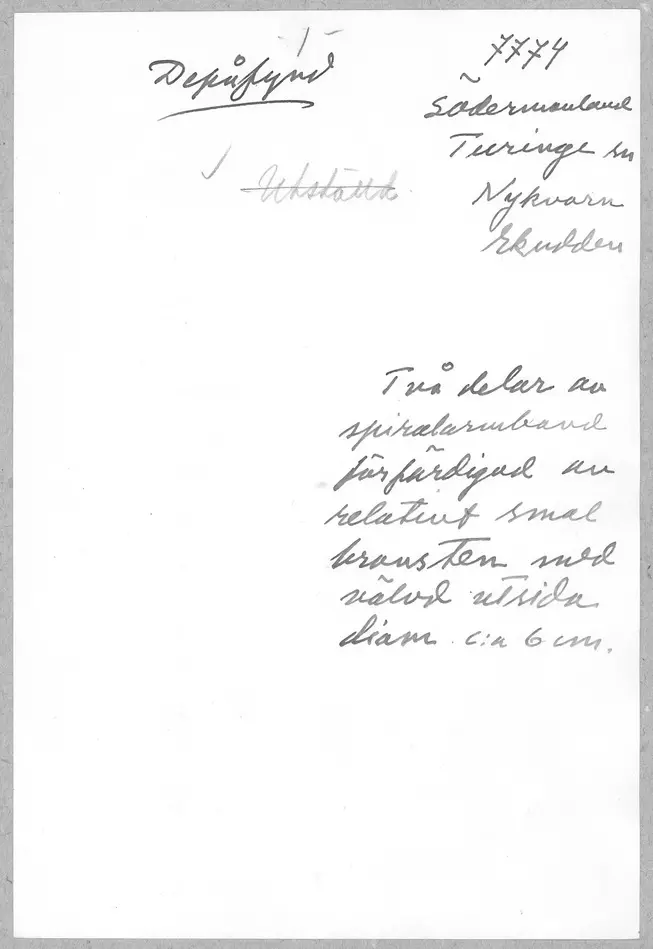 Depåfynd
7774
Södermanland
Turinge sn
Utställd
Nykvarn
Ekudden
Två delar av
spiralarmband
förfärdigad av
relativt smal
bronsten med
välvd utsida
diam c:a 6 cm.